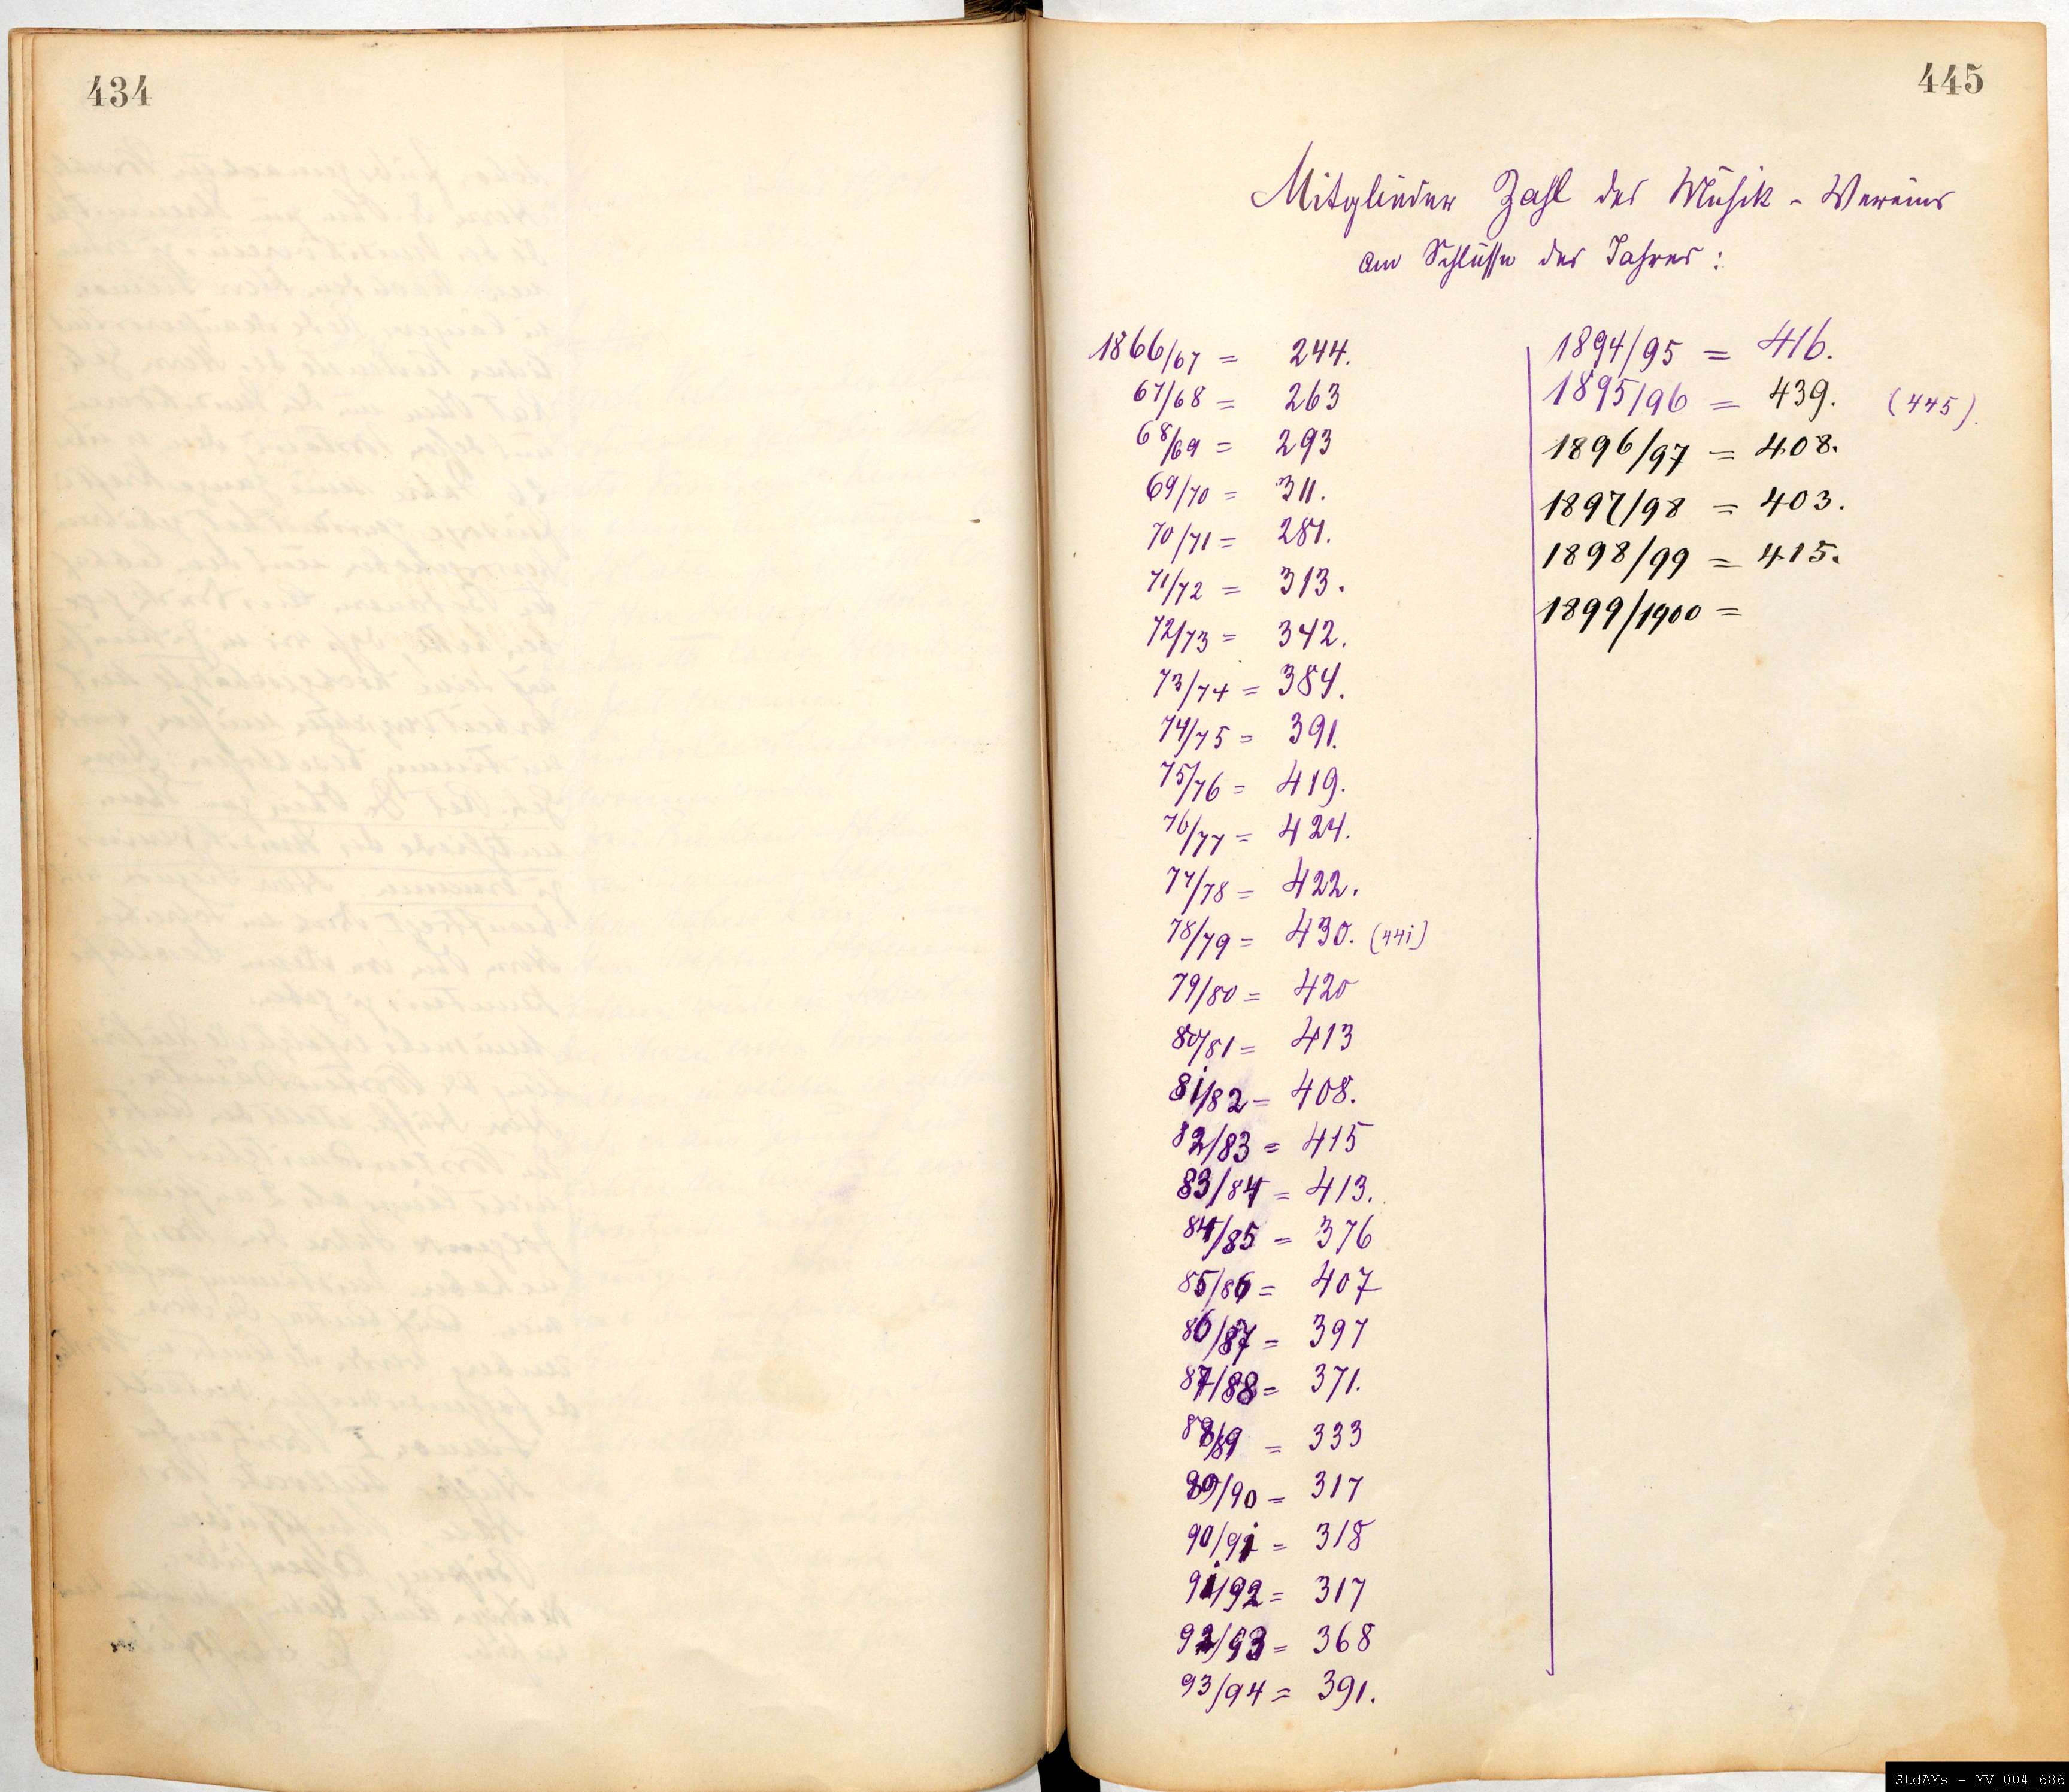 434
445
Mitglieder Zahl des Musik-Vereins
am Schlusse des Jahres:
1866/67 = 244.
67/68 = 263
68/69 = 293
69/70 = 311.
70/71 = 287.
71/72 = 313.
72/73 = 342.
73/74 = 384.
74/75 = 391.
75/76 = 419.
76/77 = 424.
77/78 = 422.
78/79 = 430. (441)
79/80 = 420
80/81 = 413
81/82 = 408.
82/83 = 415
83/84 = 413.
84/85 = 376
85/86 = 407
86/87 = 397
87/88 = 371.
88/89 = 333
89/90 = 317
90/91 = 318
91/92 = 317
92/93 = 368
93/94 = 391.
1894/95 = 416.
1895/96 = 439. (445).
1896/97 = 408.
1897/98 = 403.
1898/99 = 415.
1899/1900 =
StdAMs - MV_004_686